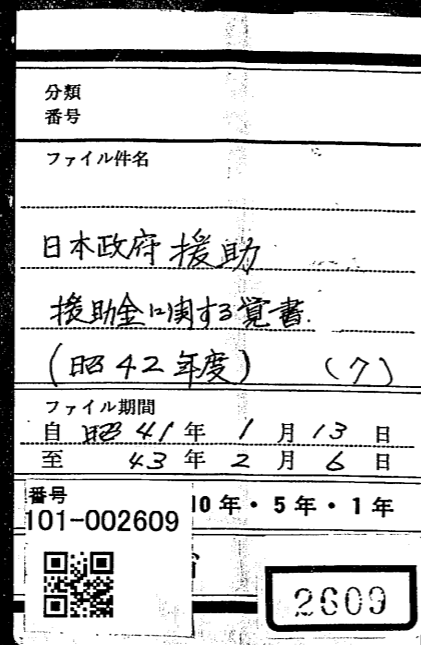 分類
番号
ファイル件名
日本政府援助
援助金に関する覚書.
(昭42年度) (7)
ファイル期間
自 昭41年 1月13日
至 43年 2月 6日
10年・5年・1年
番号
101-002609
2609